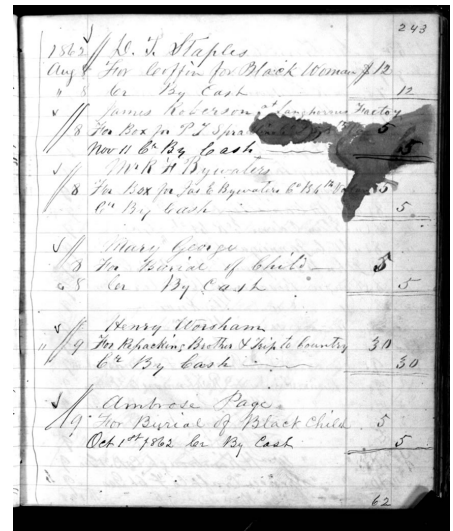 243
1862 // D. T. Staples
Aug 8 For Coffin for Black Woman $12
" 8 Cr By Cash 12
James Roberson at Langhornes Factory
// 8 For Box for P. T. 5
Nov 11 Cr By Cash 5
Mr R H Bywaters
// 8 For Box for Jas E Bywaters Co B 6th 5
Cr By Cash 5
Mary George
// 8 For Burial of Child 5
" 8 Cr By Cash 5
Henry Worsham
" // 9 For Repacking Brother & Trip to Country 30
Cr By Cash 30
Ambrose Page
// 9 For Burial of Black Child 5
Oct 1st 1862 Cr By Cash 5
62